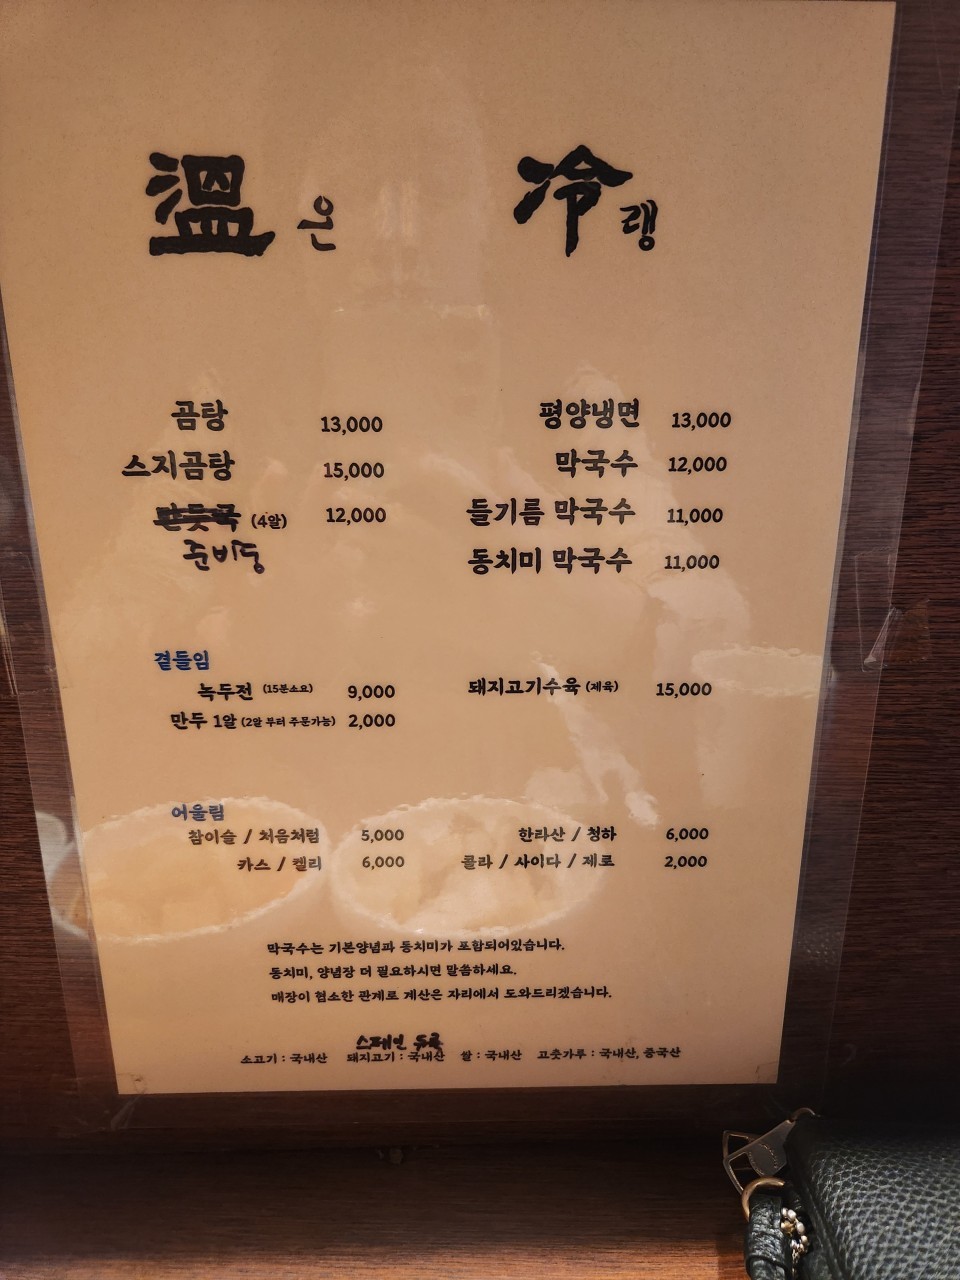 溫 온 冷 랭
곰탕 13,000 평양냉면 13,000
스지곰탕 15,000 막국수 12,000
만둣국 (4알) 12,000 들기름 막국수 11,000
준비중 동치미 막국수 11,000
곁들임
녹두전 (15분소요) 9,000 돼지고기수육 (제육) 15,000
만두 1알 (2알 부터 주문가능) 2,000
어울림
참이슬 / 처음처럼 5,000 한라산 / 청하 6,000
카스 / 켈리 6,000 콜라 / 사이다 / 제로 2,000
막국수는 기본양념과 동치미가 포함되어있습니다.
동치미, 양념장 더 필요하시면 말씀하세요.
매장이 협소한 관계로 계산은 자리에서 도와드리겠습니다.
스페인
소고기 : 국내산 돼지고기 : 국내산 쌀 : 국내산 고춧가루 : 국내산, 중국산